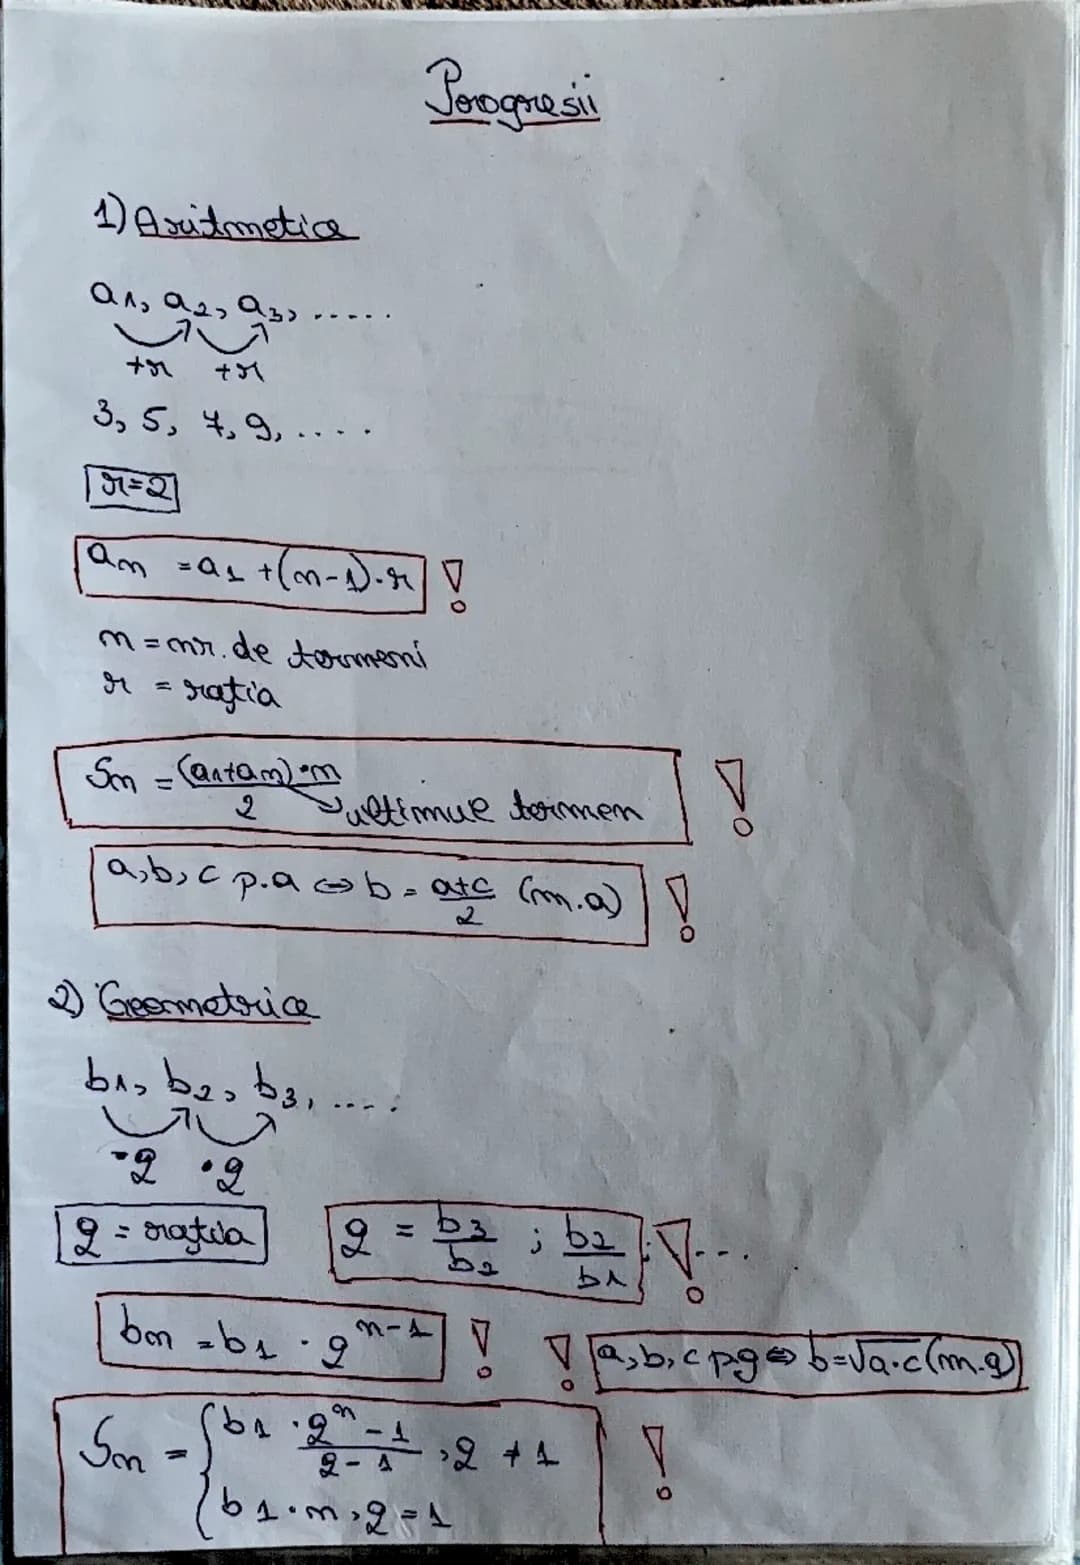 Progresii
1) Aritmetice
a1, a2, a3, .....
+r +r
3, 5, 7, 9, ....
r=2
an = a1 + (n-1)·r !
n = nr. de termeni
r = rația
Sn = (a1+an)·n / 2 → ultimul termen !
a, b, c p.a ⇔ b = a+c / 2 (m.a) !
2) Geometrice
b1, b2, b3, ....
·q ·q
q = rația q = b3/b2 ; b2/b1 ; ... !
bn = b1 · q^n-1 ! ! a, b, c p.g ⇔ b=√a·c (m.g)
Sn = { b1 · q^n - 1 / q - 1 , q ≠ 1 !
b1·n, q = 1